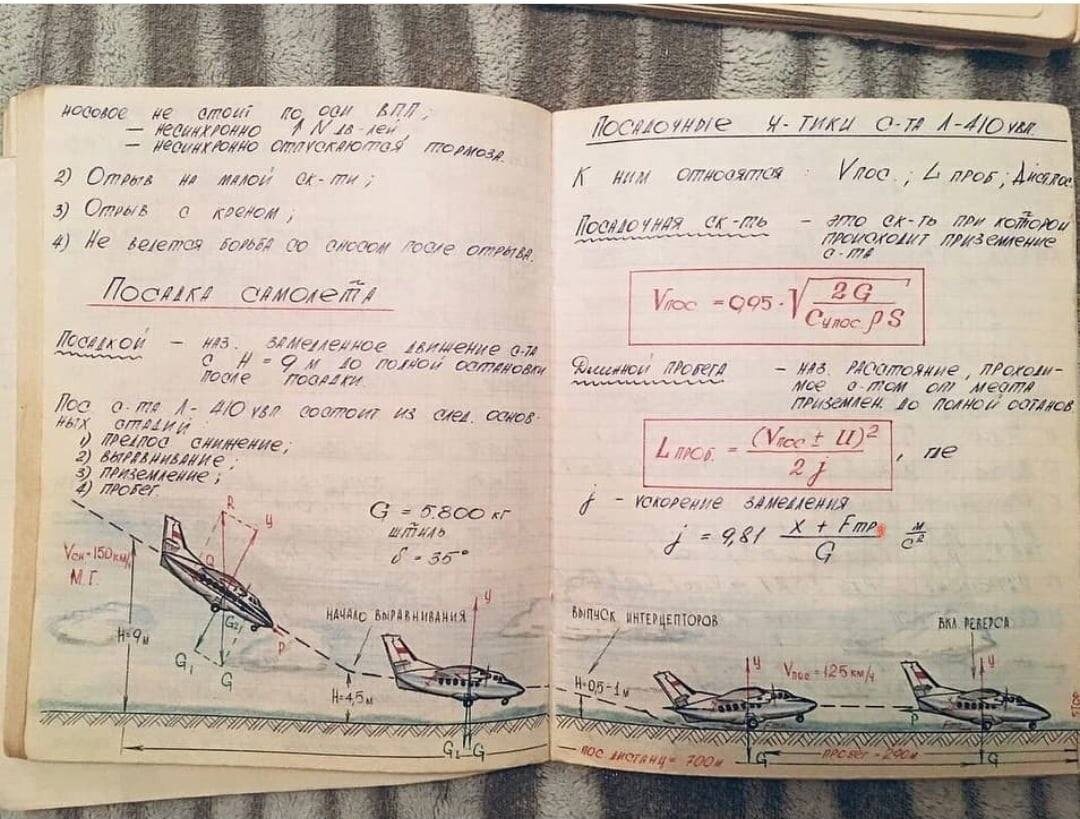 носовое не стоит по оси ВПП;
— несинхронно ↑ N дв-лей,
— несинхронно отпускаются тормоза.
2) Отрыв на малой ск-ти;
3) Отрыв с креном;
4) Не ведется борьба со сносом после отрыва.
Посадка самолета
Посадкой — наз. замедленное движение с-та
с H = 9 м до полной остановки
после посадки.
Пос с-та Л-410 увп состоит из след. основ-
ных стадий:
1) предпос снижение;
2) выравнивание;
3) приземление;
4) пробег.
G = 5.800 кг
штиль
δ = 35°
Vсн = 150 км/ч
М.Г.
R
Y
Q
G2
P
G1
G
H = 9 м
начало выравнивания
H = 4,5 м
Y
G1 G
Посадочные х-тики с-та Л-410 увп.
К ним относятся: Vпос.; L проб; Дистпос.
Посадочная ск-ть — это ск-ть при которой
происходит приземление
с-та
Vпос = 0,95 · √ 2G / Cупос ρ S
Длинной пробега — наз. расстояние, проходи-
мое с-том от места
призёмлен. до полной останов.
L проб. = (Vпос ± U)² / 2j , где
j - ускорение замедления
j = 9,81 X + Fтр / G м/с²
выпуск интерцепторов
H = 0,5 - 1 м
Y
Vпос = 125 км/ч
G
вкл реверса
Y
P
G
STOP
пос. дистанц = 700 м
пробег - 240 м